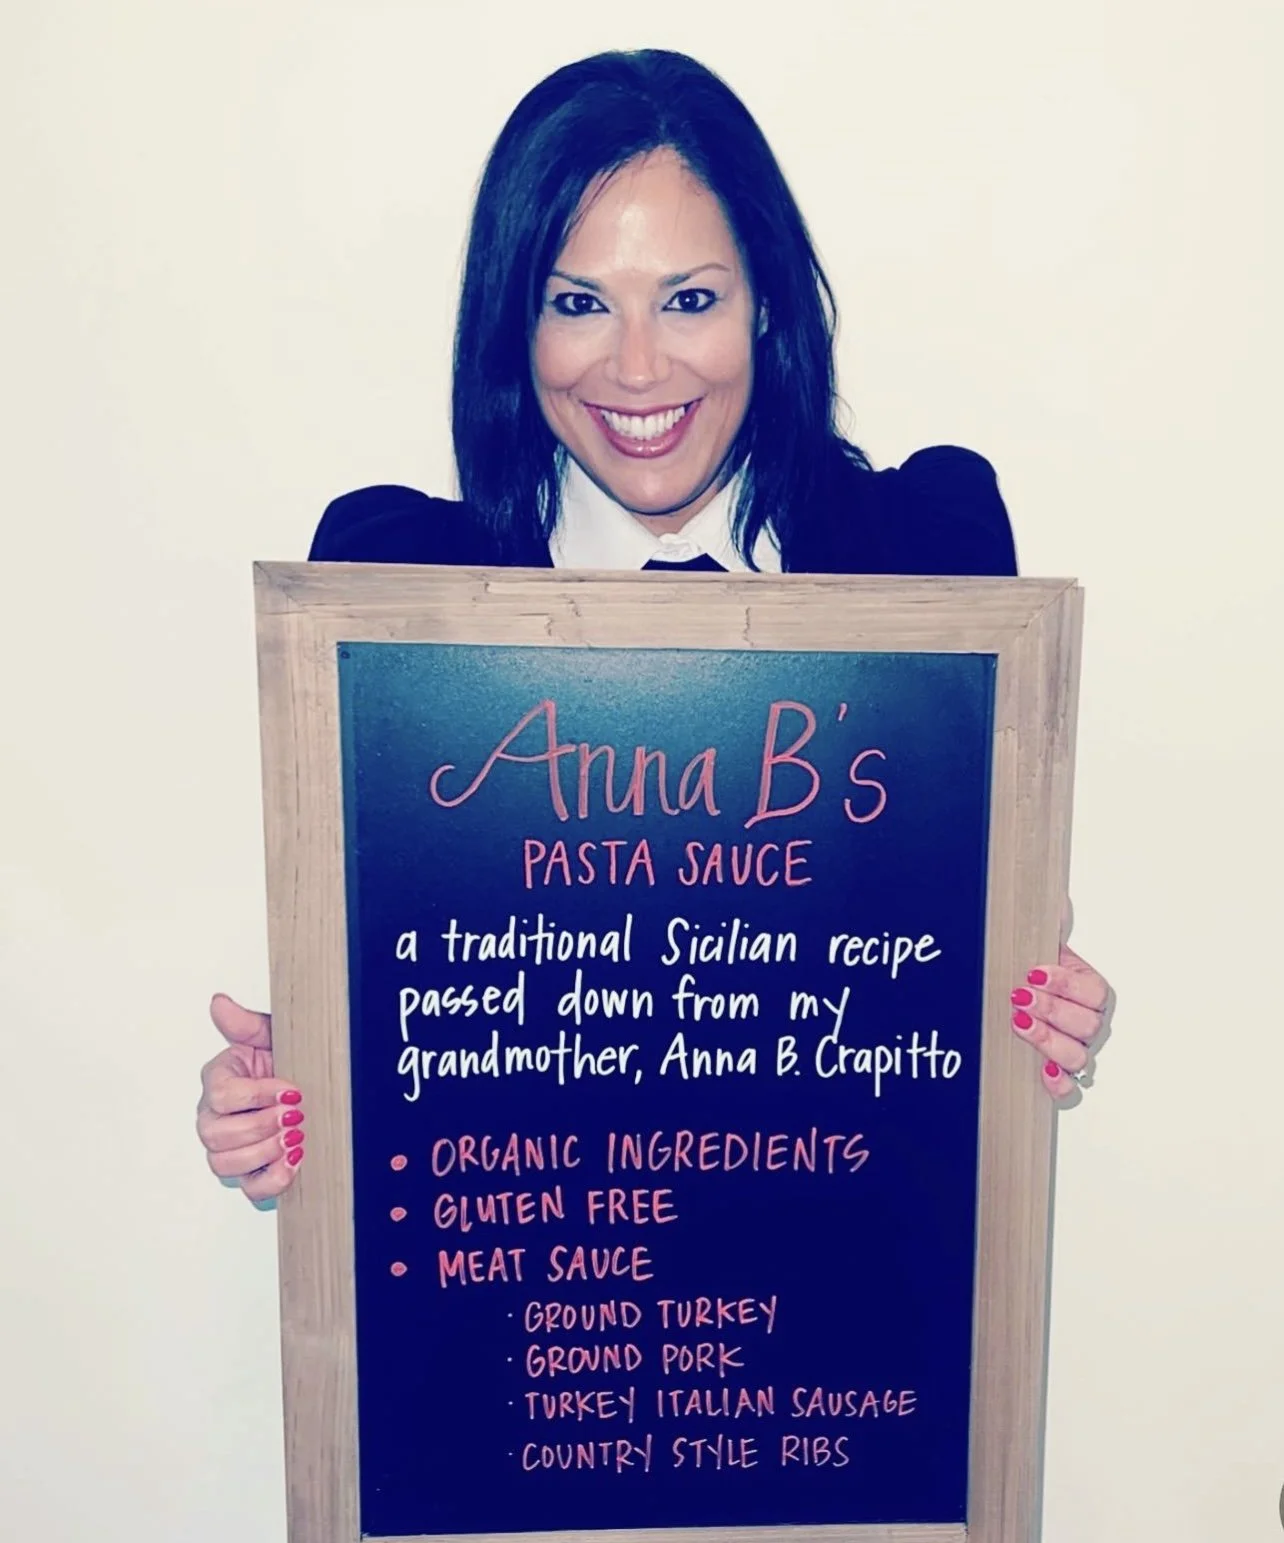 Anna B's
PASTA SAUCE
a traditional Sicilian recipe
passed down from my
grandmother, Anna B. Crapitto
• ORGANIC INGREDIENTS
• GLUTEN FREE
• MEAT SAUCE
· GROUND TURKEY
· GROUND PORK
· TURKEY ITALIAN SAUSAGE
· COUNTRY STYLE RIBS